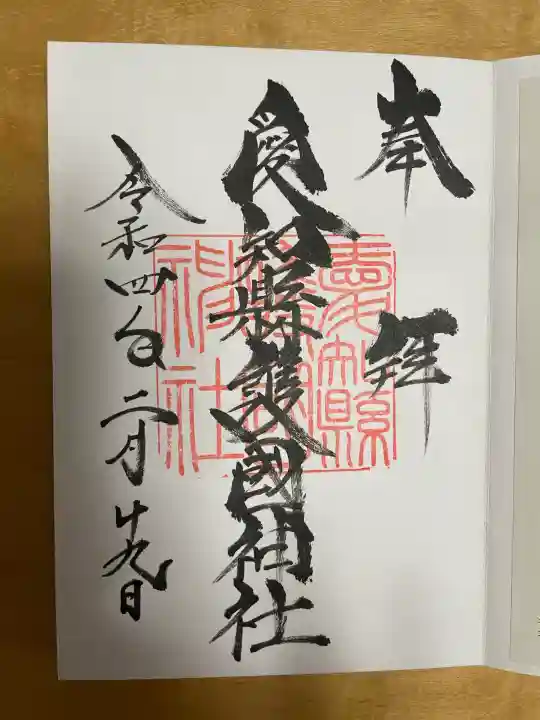 奉拝
愛知縣護國神社
愛知縣
護國
神社
令和四年二月十九日